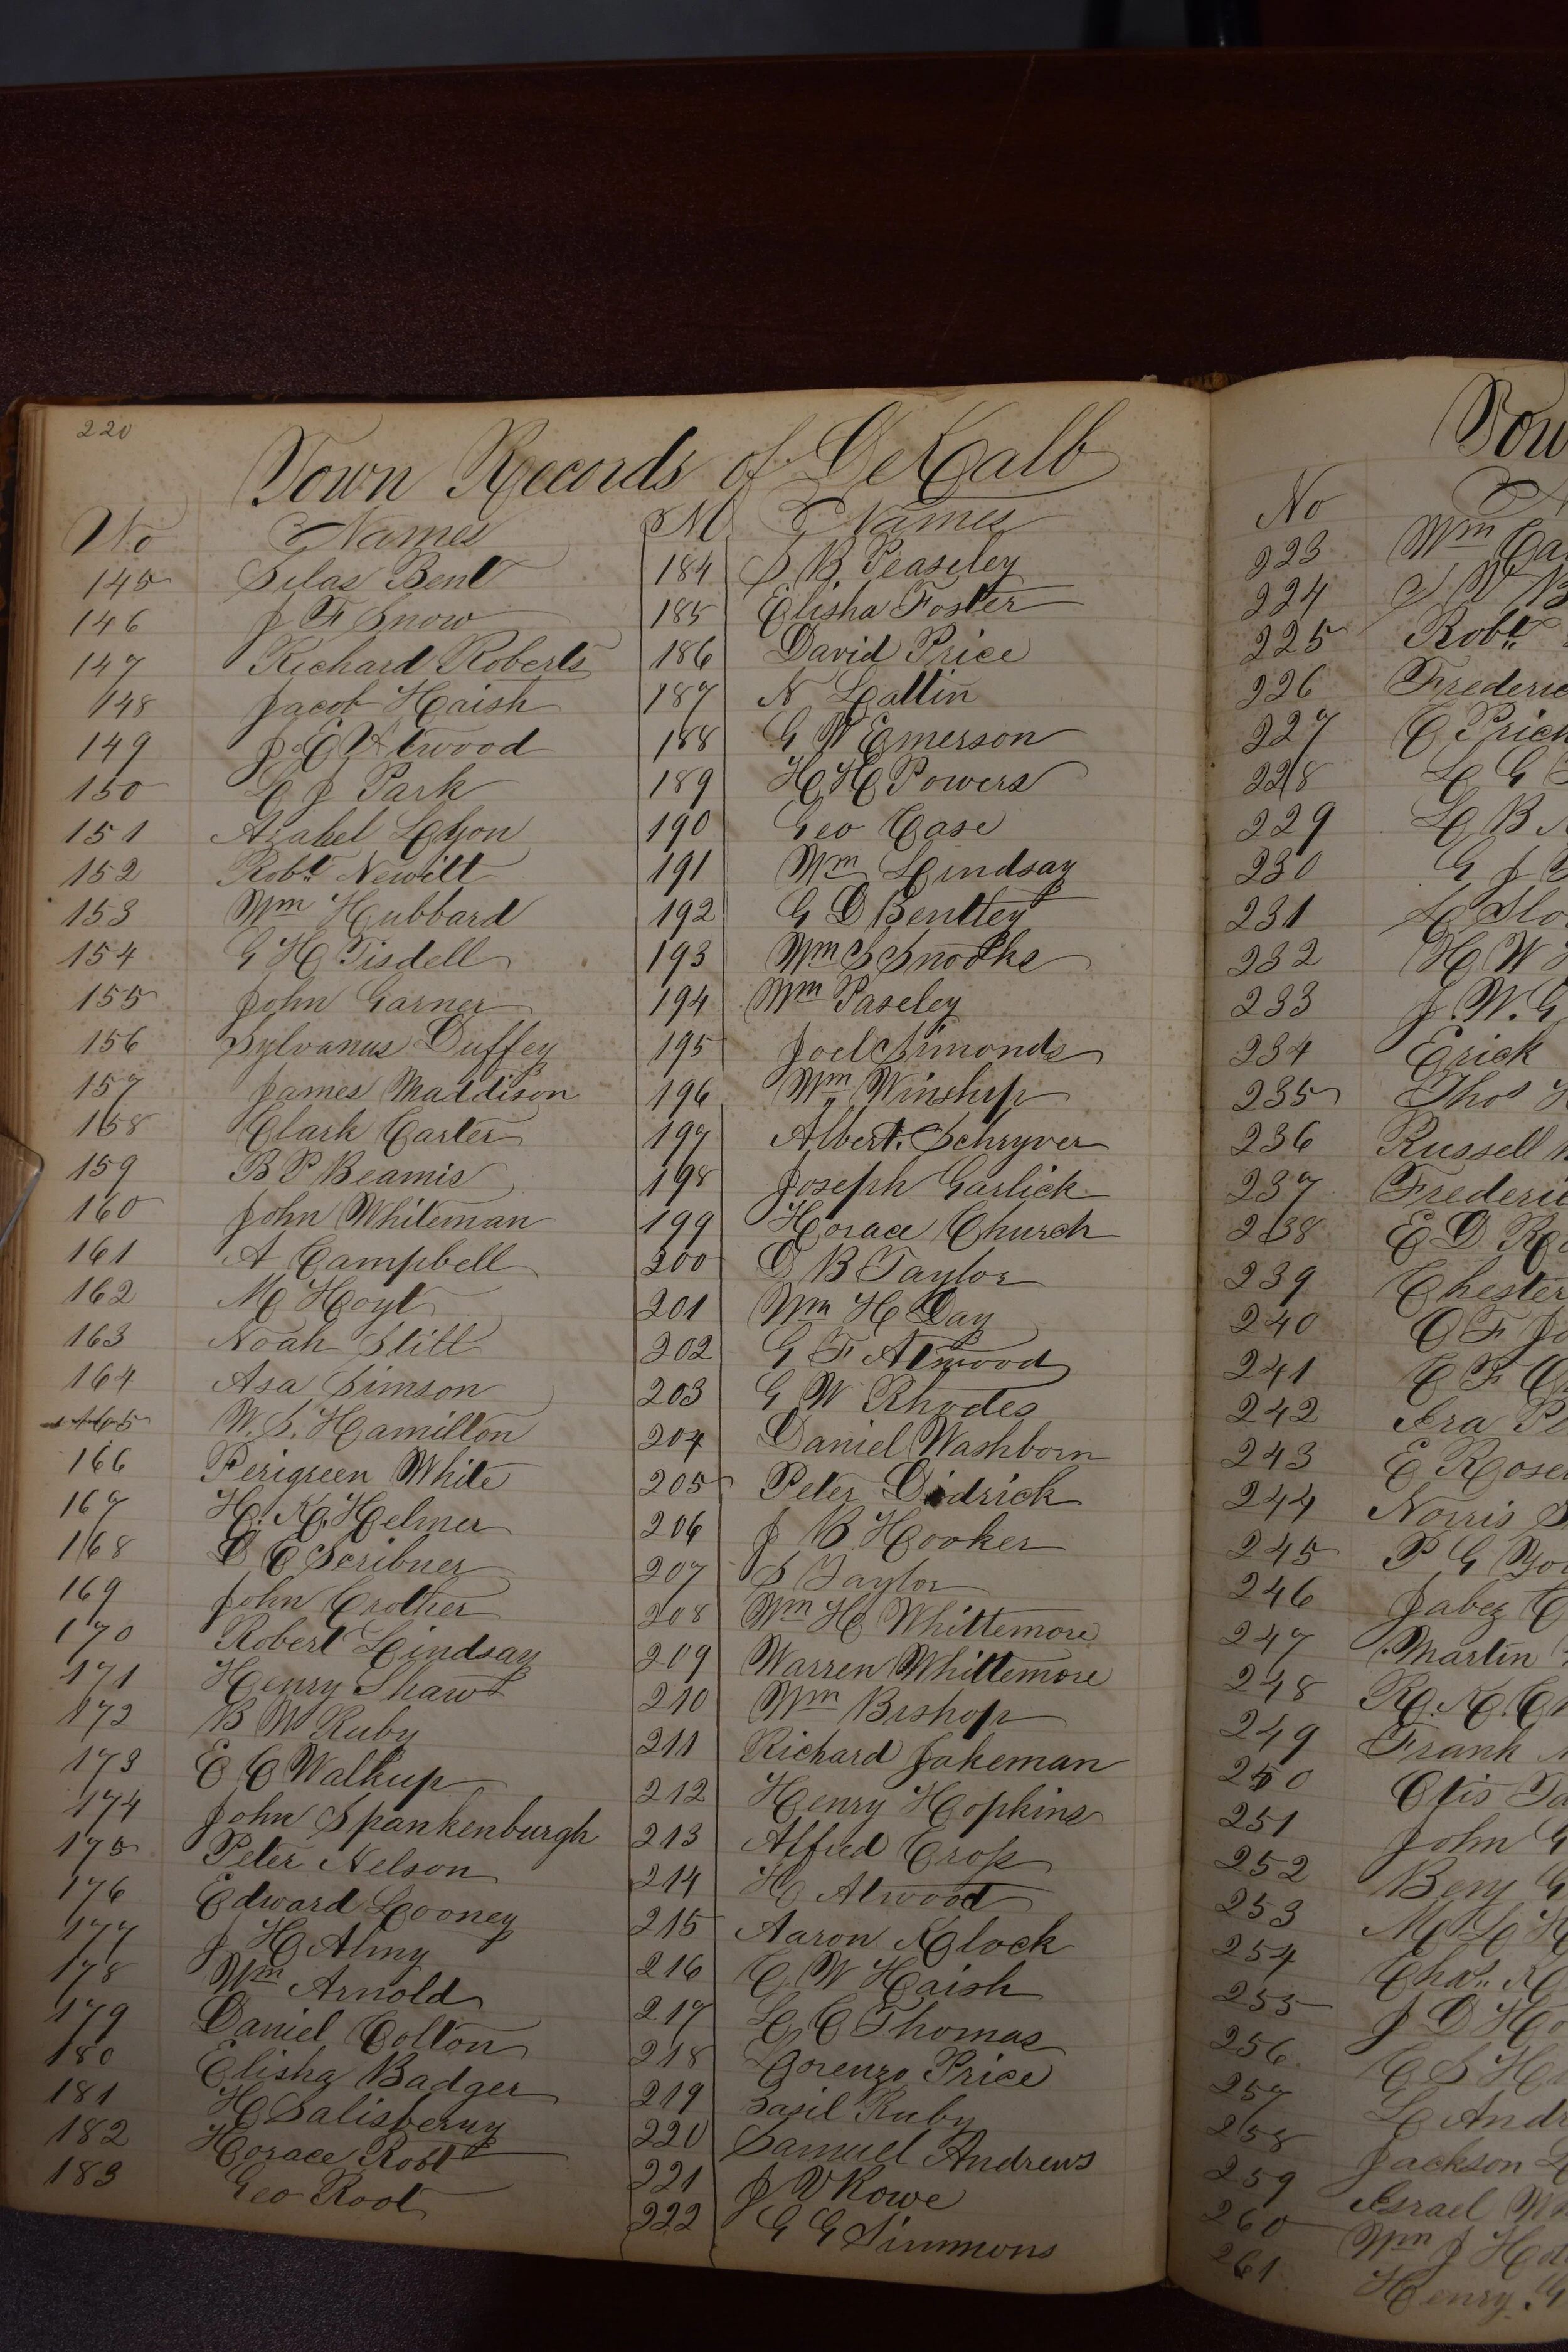 220
Town Records of DeKalb
No Names
145 Silas Bent
146 J F Snow
147 Richard Roberts
148 Jacob Haish
149 J E Atwood
150 L J Park
151 Azahel Lyon
152 Robt Newitt
153 Wm Hubbard
154 G H Tisdell
155 John Garner
156 Sylvanus Duffey
157 James Maddison
158 Clark Carter
159 B P Beamis
160 John Whiteman
161 A Campbell
162 M Hoyt
163 Noah Stitt
164 Asa Simson
165 W. S. Hamilton
166 Perigreen White
167 H. K. Helmer
168 D C Scribner
169 John Crother
170 Robert Lindsay
171 Henry Shaw
172 B W Ruby
173 E C Walkup
174 John Spankenburgh
175 Peter Nelson
176 Edward Looney
177 J H Almy
178 Wm Arnold
179 Daniel Colton
180 Elisha Badger
181 H Salisberry
182 Horace Root
183 Geo Root
No Names
184 S B. Peaseley
185 Elisha Foster
186 David Price
187 N Lattin
188 G W Emerson
189 H H Powers
190 Geo Case
191 Wm Lindsay
192 G D Bentley
193 Wm S Snooks
194 Wm Paseley
195 Joel Simonds
196 Wm Winship
197 Albert Schryver
198 Joseph Garlick
199 Horace Church
200 D B Taylor
201 Wm H Day
202 G F Atwood
203 G W Rhodes
204 Daniel Washborn
205 Peter Didrick
206 J B Hooker
207 S Taylor
208 Wm H Whittemore
209 Warren Whittemore
210 Wm Bishop
211 Richard Jakeman
212 Henry Hopkins
213 Alfred Cross
214 H Atwood
215 Aaron Klock
216 C. W Haish
217 L C Thomas
218 Lorenzo Price
219 Basil Ruby
220 Samuel Andrews
221 J V Rowe
222 G G Simmons
Tow
No
223 Wm Ca
224
225 Robt
226 Frederic
227 C Price
228 L G
229 L B
230 G J
231 Slo
232 H W
233 J. W. G
234 Erick
235 Thos
236 Russell
237 Frederic
238 E D Ro
239 Chester
240 O F Jo
241 C F
242 Ira Pe
243 E Rose
244 Norris S
245 P G You
246 Jabez C
247 Martin
248 R. K. Cr
249 Frank
250 Otis Ta
251 John G
252 Benj G
253 M L H
254 Chas. K
255 J D Ho
256 C S H
257 L Andr
258 Jackson
259 Israel
260 Wm J H
261 Henry G